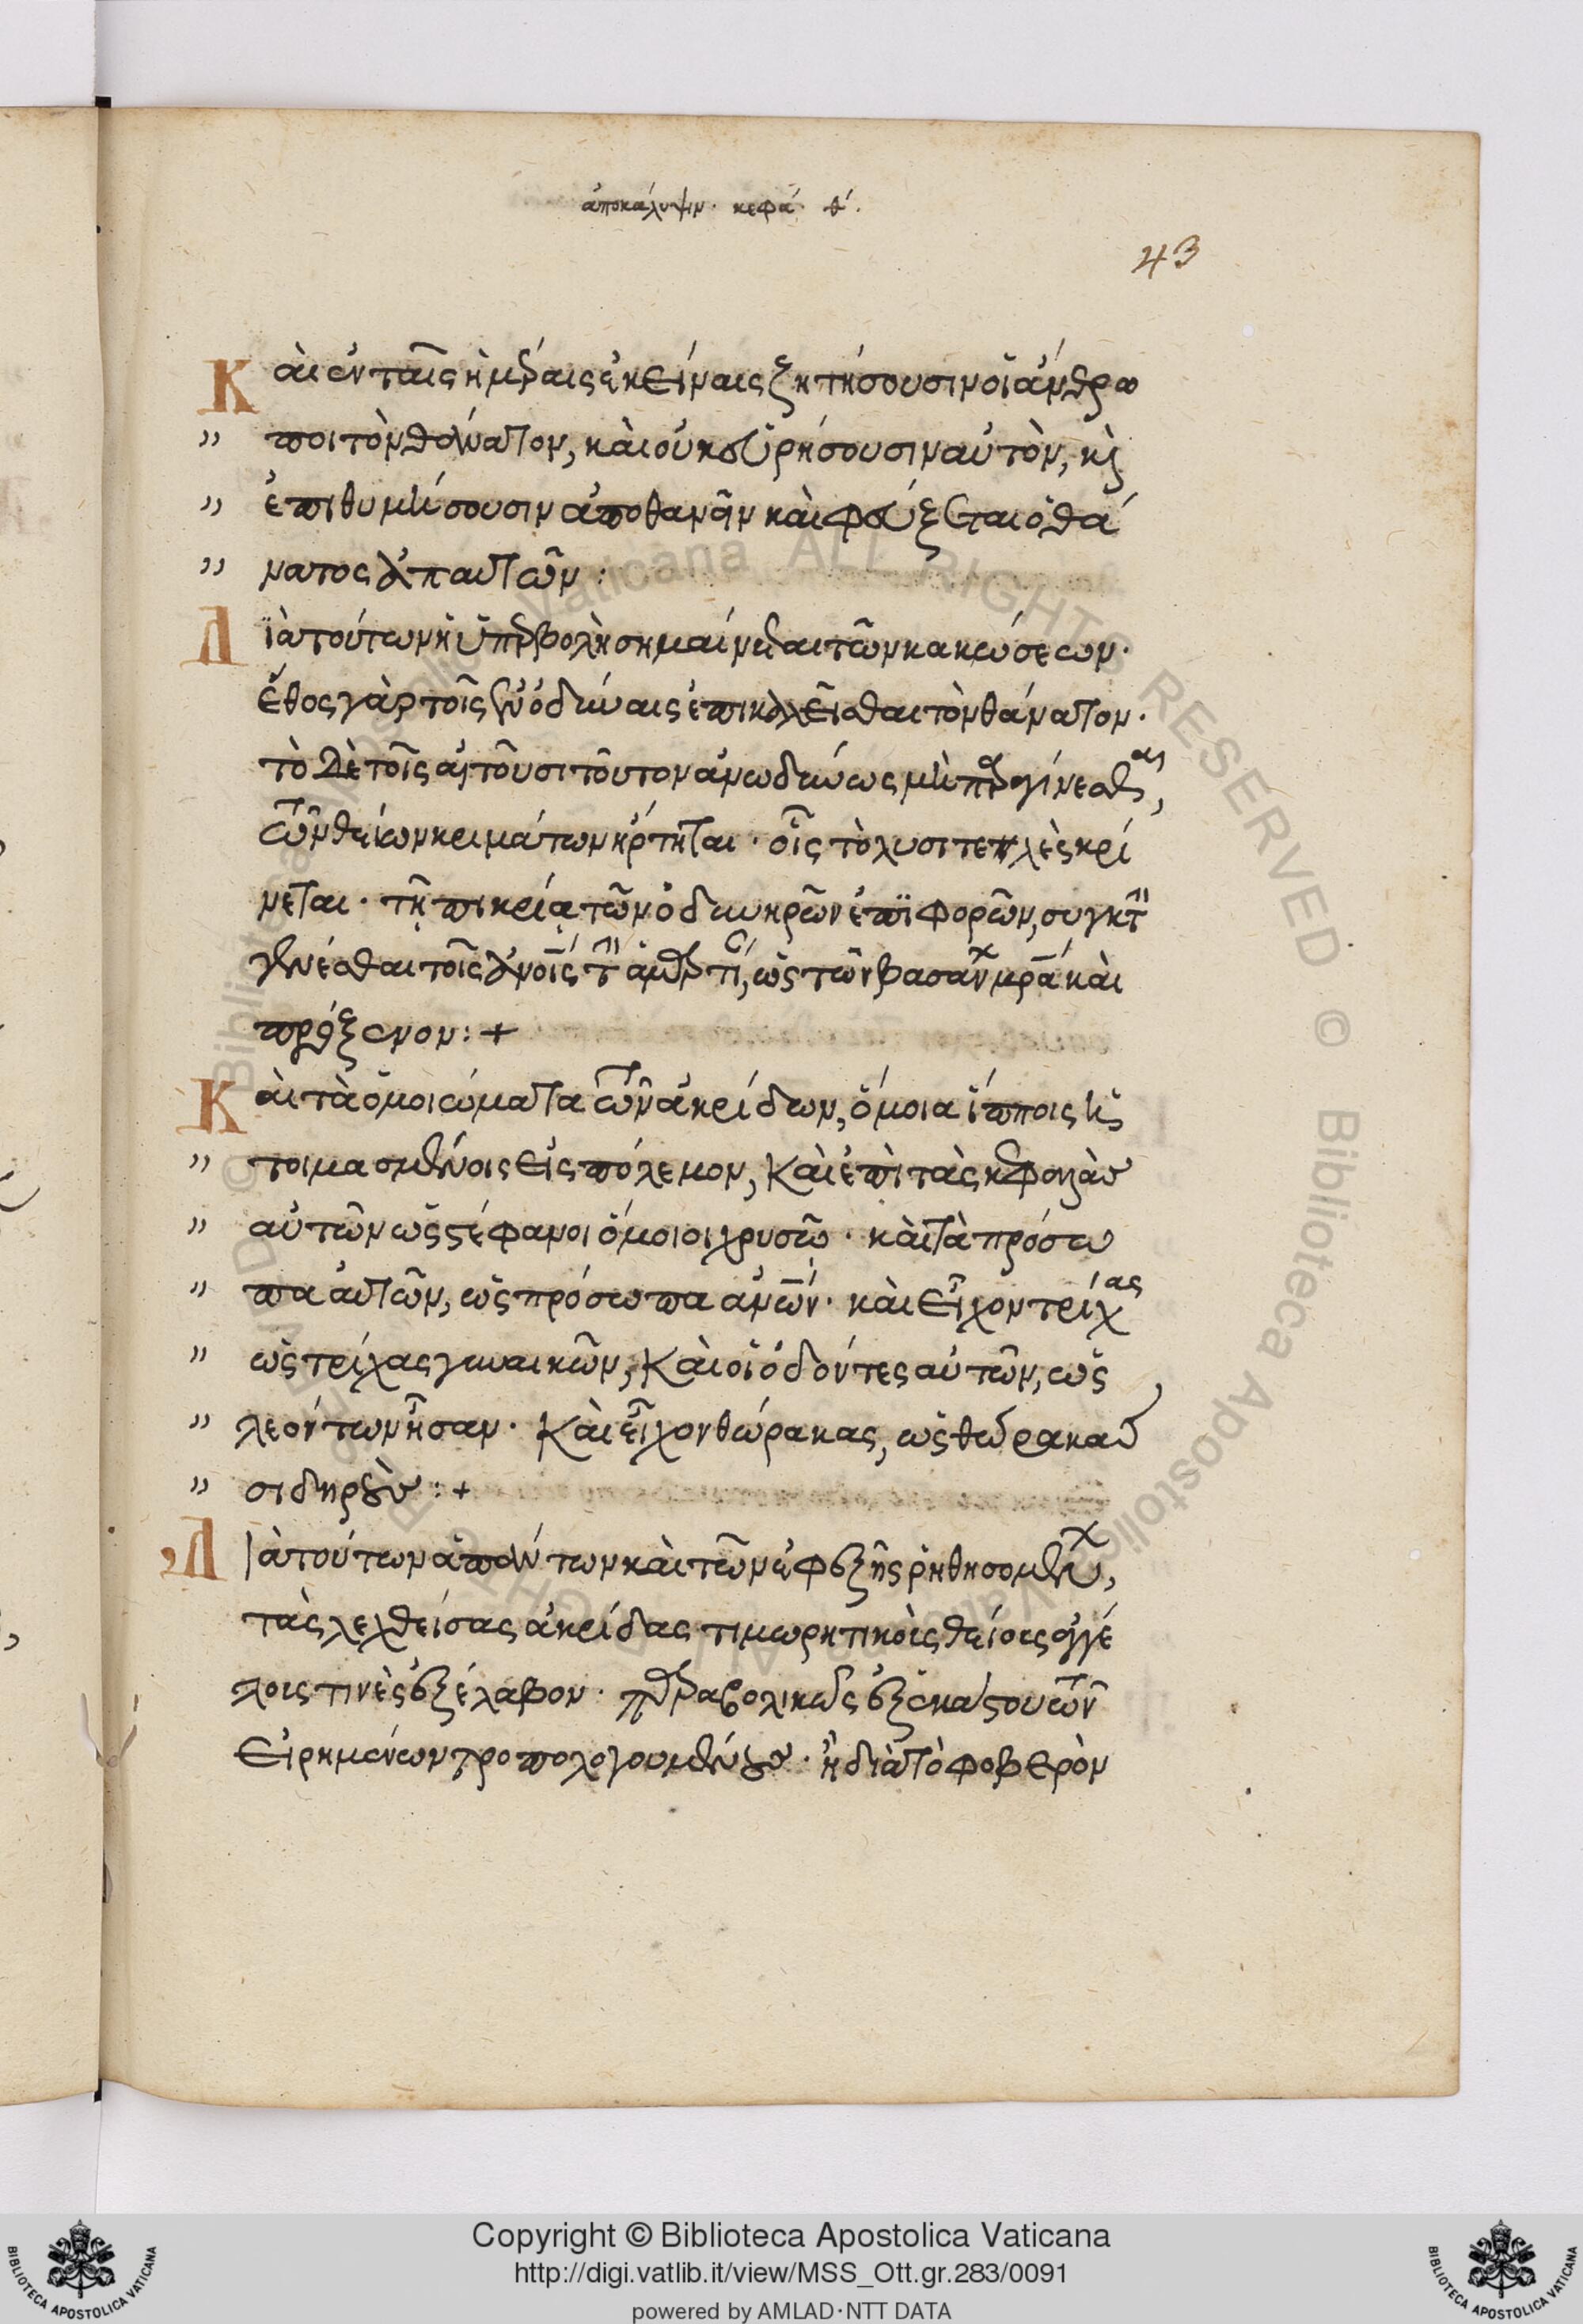 ἀποκάλυψιν· κεφά θ΄.
43
Καὶ ἐν ταῖς ἡμέραις ἐκείναις ζητήσουσιν οἱ ἄνθρω
" ποι τὸν θάνατον, καὶ οὐκ εὑρήσουσιν αὐτὸν, κὶ
" ἐπιθυμήσουσιν ἀποθανεῖν καὶ φεύξεται ὁ θά
" νατος ἀπ' αὐτῶν:
Διὰ τούτων ἡ ὑπερβολὴ σημαίνεται τῶν κακώσεων·
ἔθος γὰρ τοῖς ἐν ὀδύναις ἐπικαλεῖσθαι τὸν θάνατον·
τὸ δὲ τοῖς αἰτοῦσι τοῦτον ἀνωδύνως μὴ παραγίνεσθαι,
τῶν θείων κριμάτων ἤρτηται· οἷς τὸ λυσιτελὲς κρί
νεται· τῇ πικρίᾳ τῶν ὀδυνηρῶν ἐπιφορῶν, συγκτ
γενέσθαι τοῖς ἀνοῖς τ ἁμαρτί, ὡς τῶν βασάνων μρά καὶ
πρόξενον: +
Καὶ τὰ ὁμοιώματα τῶν ἀκρίδων, ὅμοια ἵπποις ἡ
" τοιμασμένοις εἰς πόλεμον, Καὶ ἐπὶ τὰς κεφαλὰς
" αὐτῶν ὡς στέφανοι ὅμοιοι χρυσῷ· καὶ τὰ πρόσω
" πα αὐτῶν, ὡς πρόσωπα ἀνων· καὶ εἶχον τρίχας
" ὡς τρίχας γυναικῶν, Καὶ οἱ ὀδόντες αὐτῶν, ὡς
" λεόντων ἦσαν· Καὶ εἶχον θώρακας, ὡς θώρακας
" σιδηροὺς: +
Διὰ τούτων ἁπάντων καὶ τῶν ἐφεξῆς ῥηθησομένων,
τὰς λεχθείσας ἀκρίδας τιμωρητικοῖς θείοις ἀγγέ
λοις τινὲς ἐξέλαβον· παραβολικῶς ἐξ ἑκάστου τῶν
εἰρημένων τροπολογουμένους· ἢ διὰ τὸ φοβερὸν
Copyright © Biblioteca Apostolica Vaticana
http://digi.vatlib.it/view/MSS_Ott.gr.283/0091
powered by AMLAD·NTT DATA